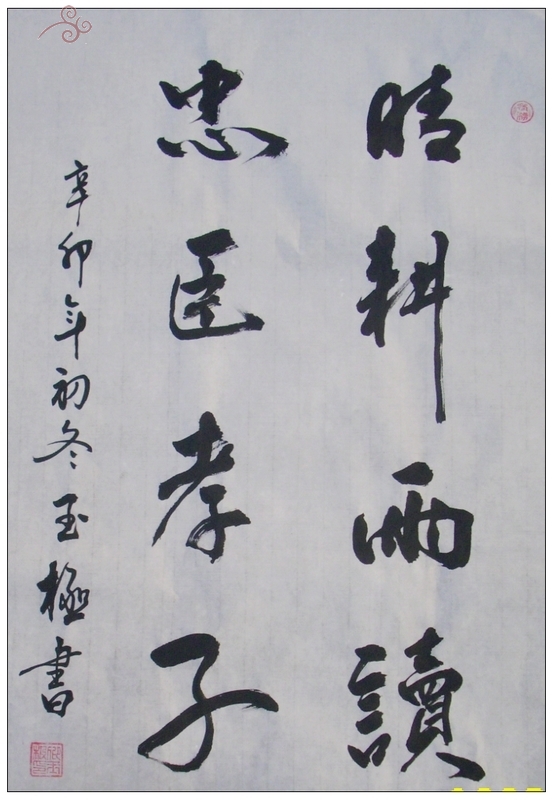 晴耕雨讀
忠臣孝子
辛卯年初冬玉極書